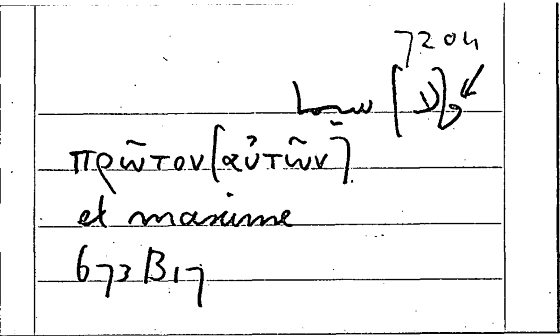 7204
πρῶτον [αὐτῶν]
et maxime
673 B 17